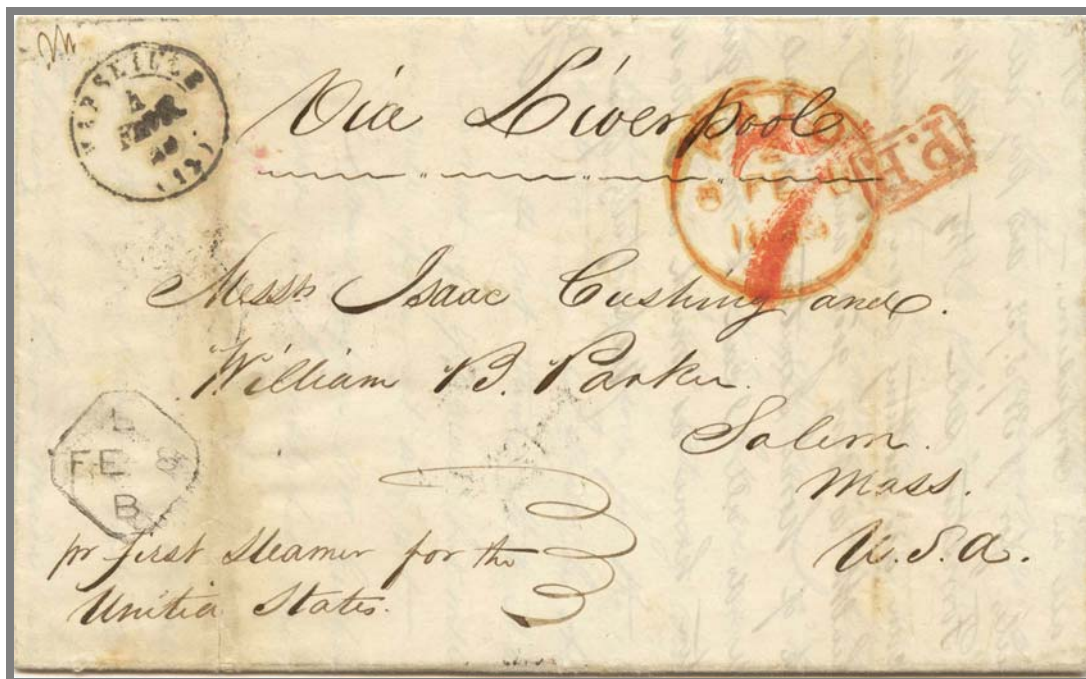 MARSEILLE
4
FEVR.
(12)
Via Liverpool
PAID
8 FE 8
7
P.P.
Messrs Isaac Cushing and.
William B. Parker.
Salem.
Mass.
U.S.A.
L
FE 8
B
pr first Steamer for the
United States.